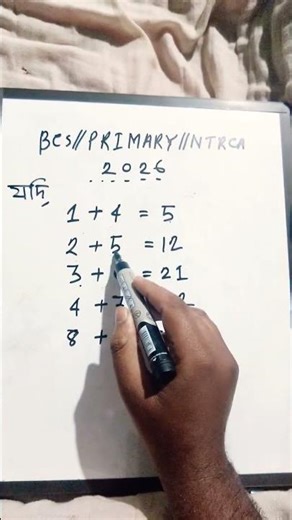 BCS//PRIMARY//NTRCA
2026
যদি
1 + 4 = 5
2 + 5 = 12
3 + = 21
4 + 7
8 +